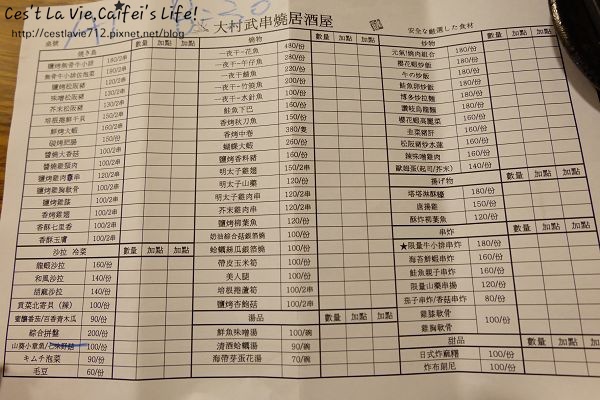 Ces't La Vie,Caifei's Life!
http://cestlavie712.pixnet.net/blog
大村武串燒居酒屋
安全な厳選した食材
桌號
燒き鳥 數量 加點 加點
鹽烤無骨牛小排 180/2串
無骨牛小排佐泡菜 190/2串
鹽烤松阪豬 120/2串
味增松阪豬 130/2串
芥末松阪豬 130/2串
培根捲鮮干貝 150/2串
鮮烤大蝦 160/份
碳烤肥腸 150/份
醬燒大香菇 100/2串
醬燒雞腿肉 100/2串
鹽烤雞肉蔥串 120/2串
鹽烤雞胸軟骨 100/2串
鹽烤雞膝 100/2串
香烤雞翅 100/2串
香酥七里香 100/2串
香酥玉膚 100/2串
沙拉 冷菜 數量 加點 加點
龍蝦沙拉 160/份
和風沙拉 140/份
胡麻沙拉 140/份
貝菜北寄貝(辣) 100/份
蜜釀番茄/百香青木瓜 90/份
綜合拼盤 200/份
山葵小章魚/七味野菇 100/份
キムチ泡菜 90/份
毛豆 60/份
燒物 數量 加點 加點
一夜干-花魚 480/份
一夜干-午仔魚 280/份
一夜干-鯖魚 200/份
一夜干-竹筴魚 180/份
一夜干-水針魚 100/份
鮭魚下巴 160/份
香烤秋刀魚 150/份
香烤中卷 380/隻
蝴蝶大蝦 260/份
鹽烤香料豬 150/份
明太子雞翅 150/2串
明太子山藥 120/份
明太子雞肉串 120/2串
芥末雞肉串 120/2串
鹽烤柳葉魚 120/份
奶油綜合菇銀箔燒 100/份
蛤蠣絲瓜銀箔燒 100/份
帶皮玉米筍 100/份
美人腿 100/份
培根捲蘆筍 100/份
鹽烤杏鮑菇 100/份
湯品 數量 加點 加點
鮮魚味噌湯 100/碗
清酒蛤蠣湯 90/碗
海帶芽蛋花湯 70/碗
炒物 數量 加點 加點
元氣!燒肉組合 180/份
櫻花蝦炒飯 180/份
牛の炒飯 180/份
鮭魚卵炒飯 180/份
博多炒拉麵 180/份
讚岐烏龍麵 180/份
櫻花蝦高麗菜 150/份
韭菜豬肝 150/份
松阪豬炒水蓮 150/份
辣味噌雞肉 150/份
歐姆蛋(起司/芥末) 140/份
揚げ物 數量 加點 加點
塔塔淋酥雞 180/份
唐揚雞 150/份
酥炸柳葉魚 120/份
串炸 數量 加點 加點
★限量牛小排串炸 180/份
海苔鮮蝦串炸 150/份
鮭魚親子串炸 150/份
限量山藥串揚 120/份
茄子串炸/香菇串炸 80/份
雞膝軟骨
雞胸軟骨 100/份
甜品 數量 加點 加點
日式炸麻糬 100/份
炸布朗尼 100/份